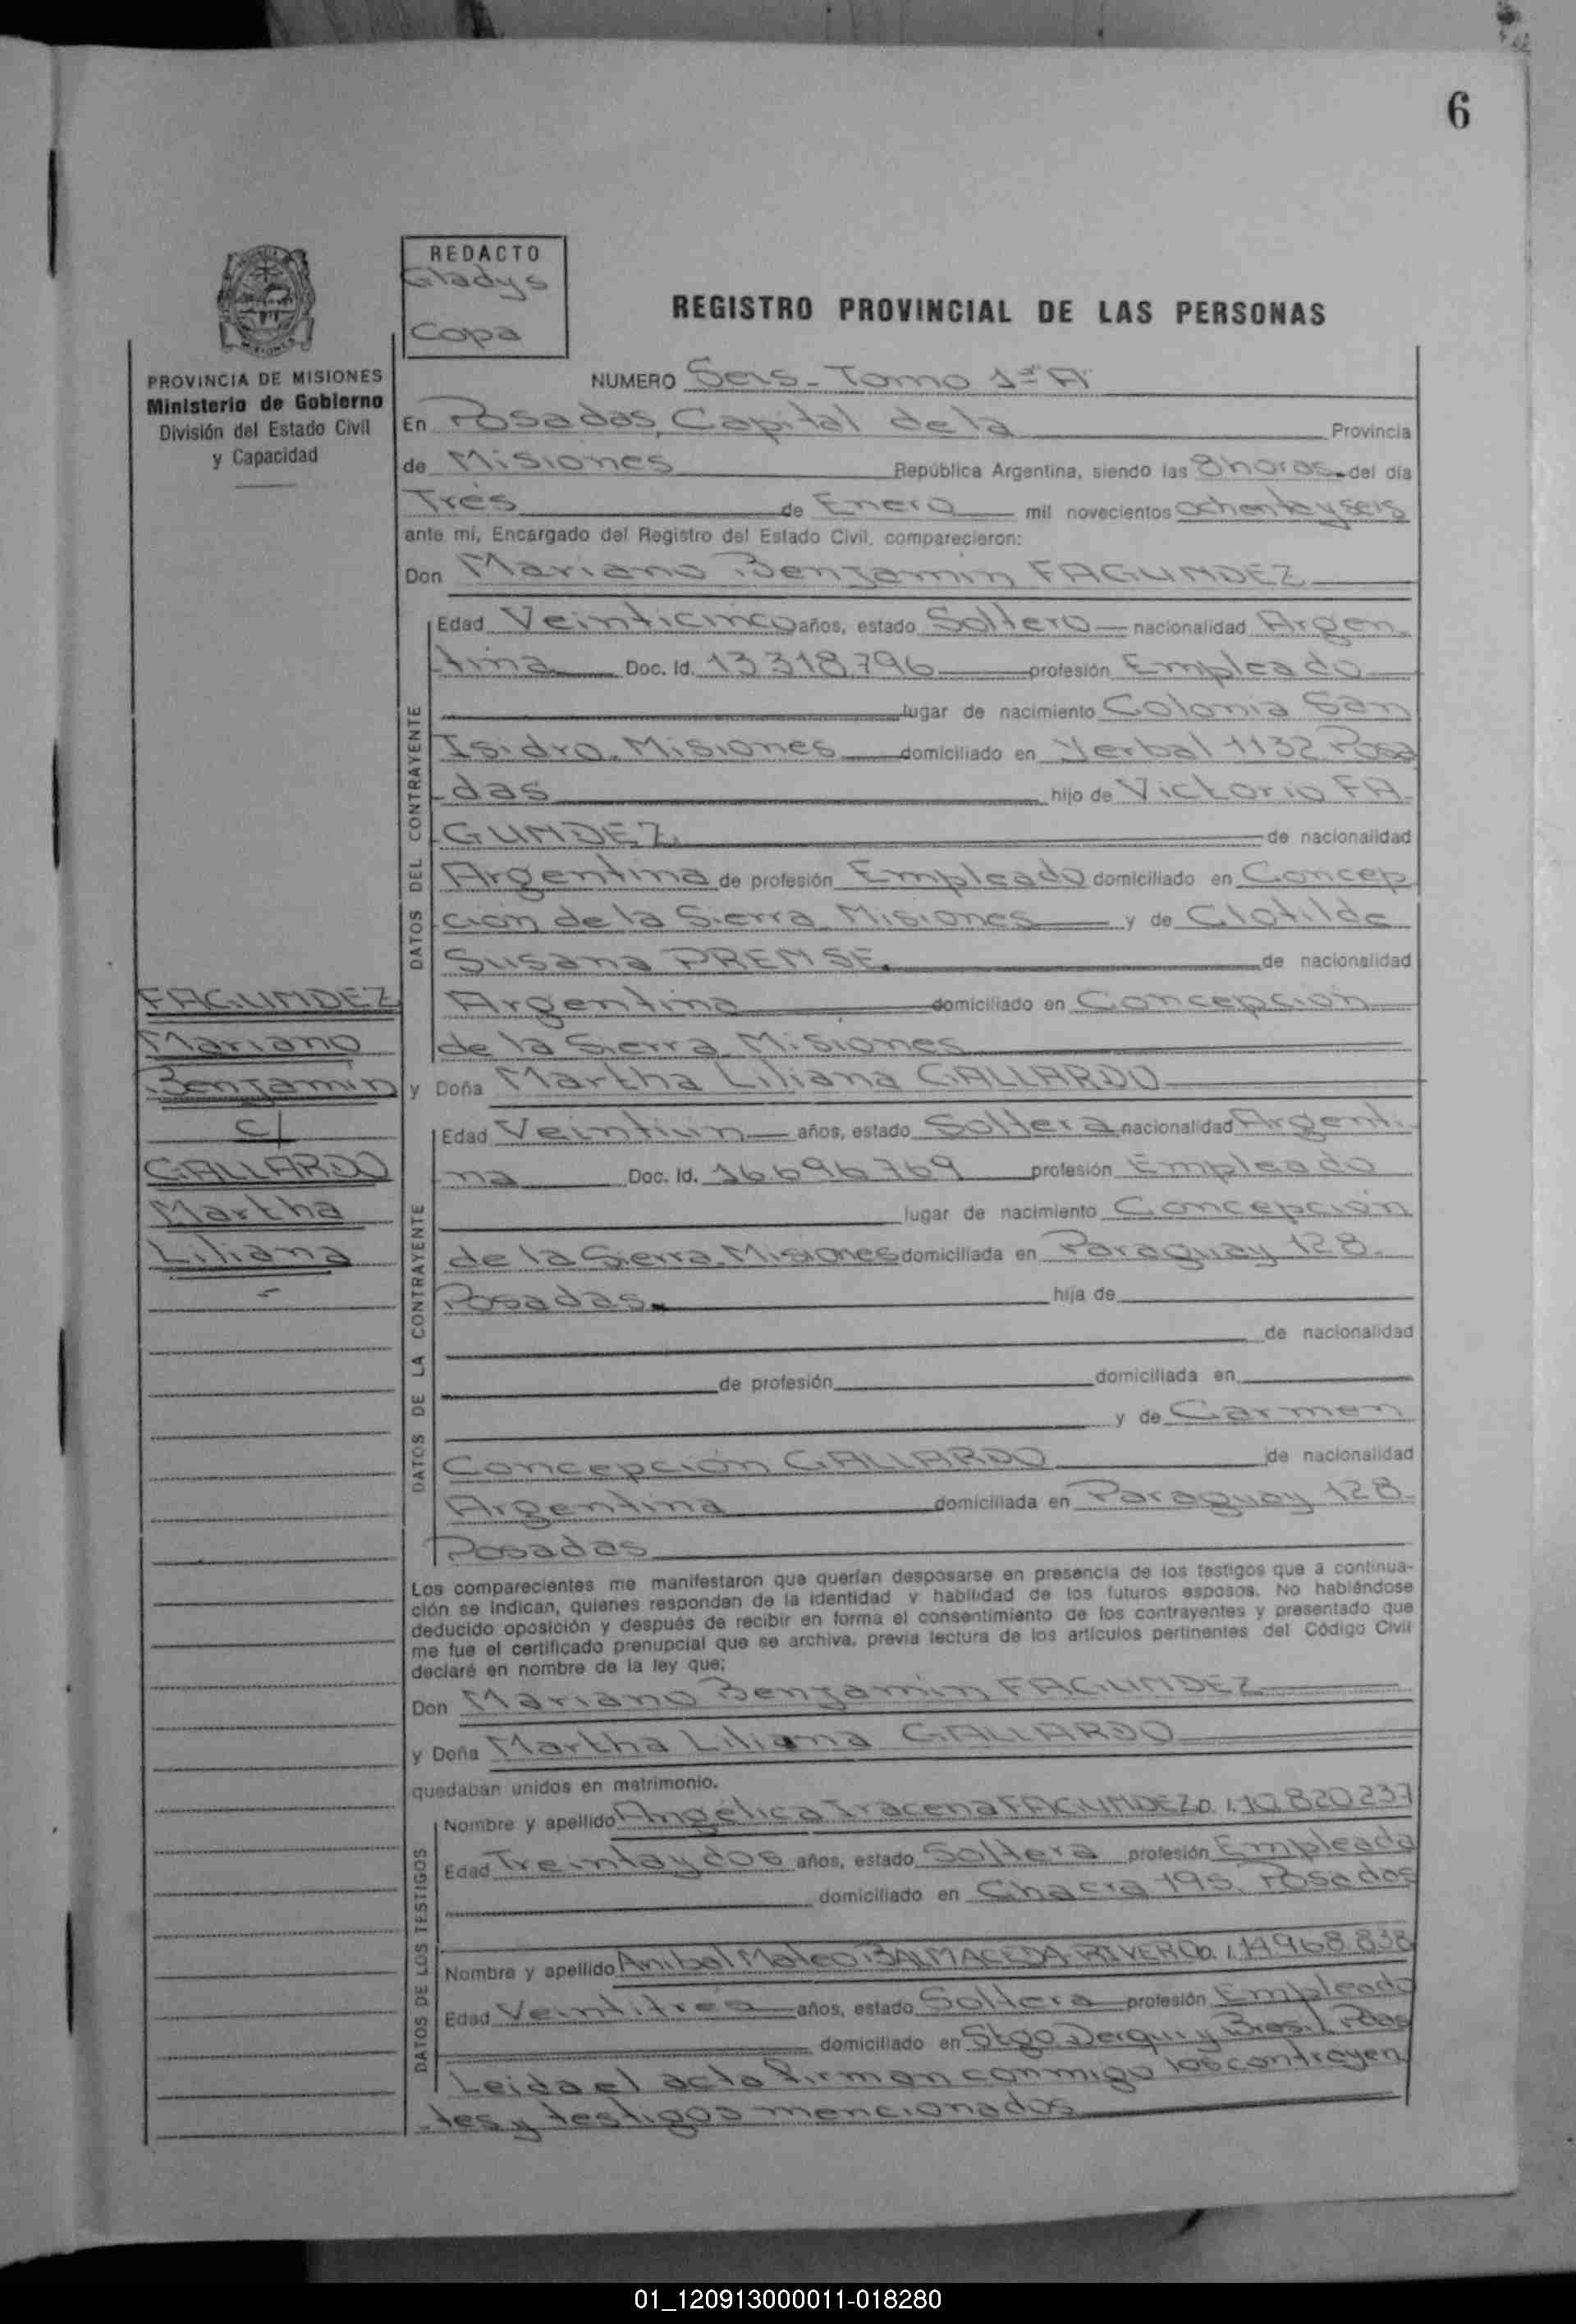 6
REDACTO
Gladys
Copa
REGISTRO PROVINCIAL DE LAS PERSONAS
PROVINCIA DE MISIONES
Ministerio de Gobierno
División del Estado Civil
y Capacidad
NUMERO Seis - Tomo 1º A
En Posadas, Capital de la Provincia
de Misiones República Argentina, siendo las 8 horas del día
Tres de Enero mil novecientos ochenta y seis
ante mí, Encargado del Registro del Estado Civil, comparecieron:
Don Mariano Benjamin FAGUNDEZ
DATOS DEL CONTRAYENTE
Edad Veinticinco años, estado Soltero nacionalidad Argen
tina Doc. Id. 13.318.796 profesión Empleado
lugar de nacimiento Colonia San
Isidro. Misiones domiciliado en Yerbal 1132 Posa
das hijo de Victorio FA
GUNDEZ de nacionalidad
Argentina de profesión Empleado domiciliado en Concep
ción de la Sierra Misiones y de Clotilde
Susana PREMSE de nacionalidad
Argentina domiciliado en Concepción
de la Sierra Misiones
FAGUNDEZ
Mariano
Benjamin
c/
GALLARDO
Martha
Liliana
-
y Doña Martha Liliana GALLARDO
DATOS DE LA CONTRAYENTE
Edad Veintiun años, estado Soltera nacionalidad Argenti
na Doc. Id. 16.696.769 profesión Empleado
lugar de nacimiento Concepción
de la Sierra. Misiones domiciliada en Paraguay 128.
Posadas. hija de
de nacionalidad
de profesión domiciliada en
y de Carmen
Concepción GALLARDO de nacionalidad
Argentina domiciliada en Paraguay 128
Posadas
Los comparecientes me manifestaron que querían desposarse en presencia de los testigos que a continua-
ción se indican, quienes responden de la identidad y habilidad de los futuros esposos. No habiéndose
deducido oposición y después de recibir en forma el consentimiento de los contrayentes y presentado que
me fue el certificado prenupcial que se archiva, previa lectura de los artículos pertinentes del Código Civil
declaré en nombre de la ley que:
Don Mariano Benjamin FAGUNDEZ
y Doña Martha Liliana GALLARDO
quedaban unidos en matrimonio.
DATOS DE LOS TESTIGOS
Nombre y apellido Angélica Iracena FAGUNDEZ D.I. 10.820.237
Edad Treinta y dos años, estado Soltera profesión Empleada
domiciliado en Chacra 195 Posadas
Nombre y apellido Anibal Mateo BALMACEDA RIVERO D.I. 14.968.838
Edad Veintitres años, estado Soltera profesión Empleado
domiciliado en Stgo. Derqui y Brasil Pdas
Leida el acta firman conmigo los contrayen
tes y testigos mencionados
01_120913000011-018280